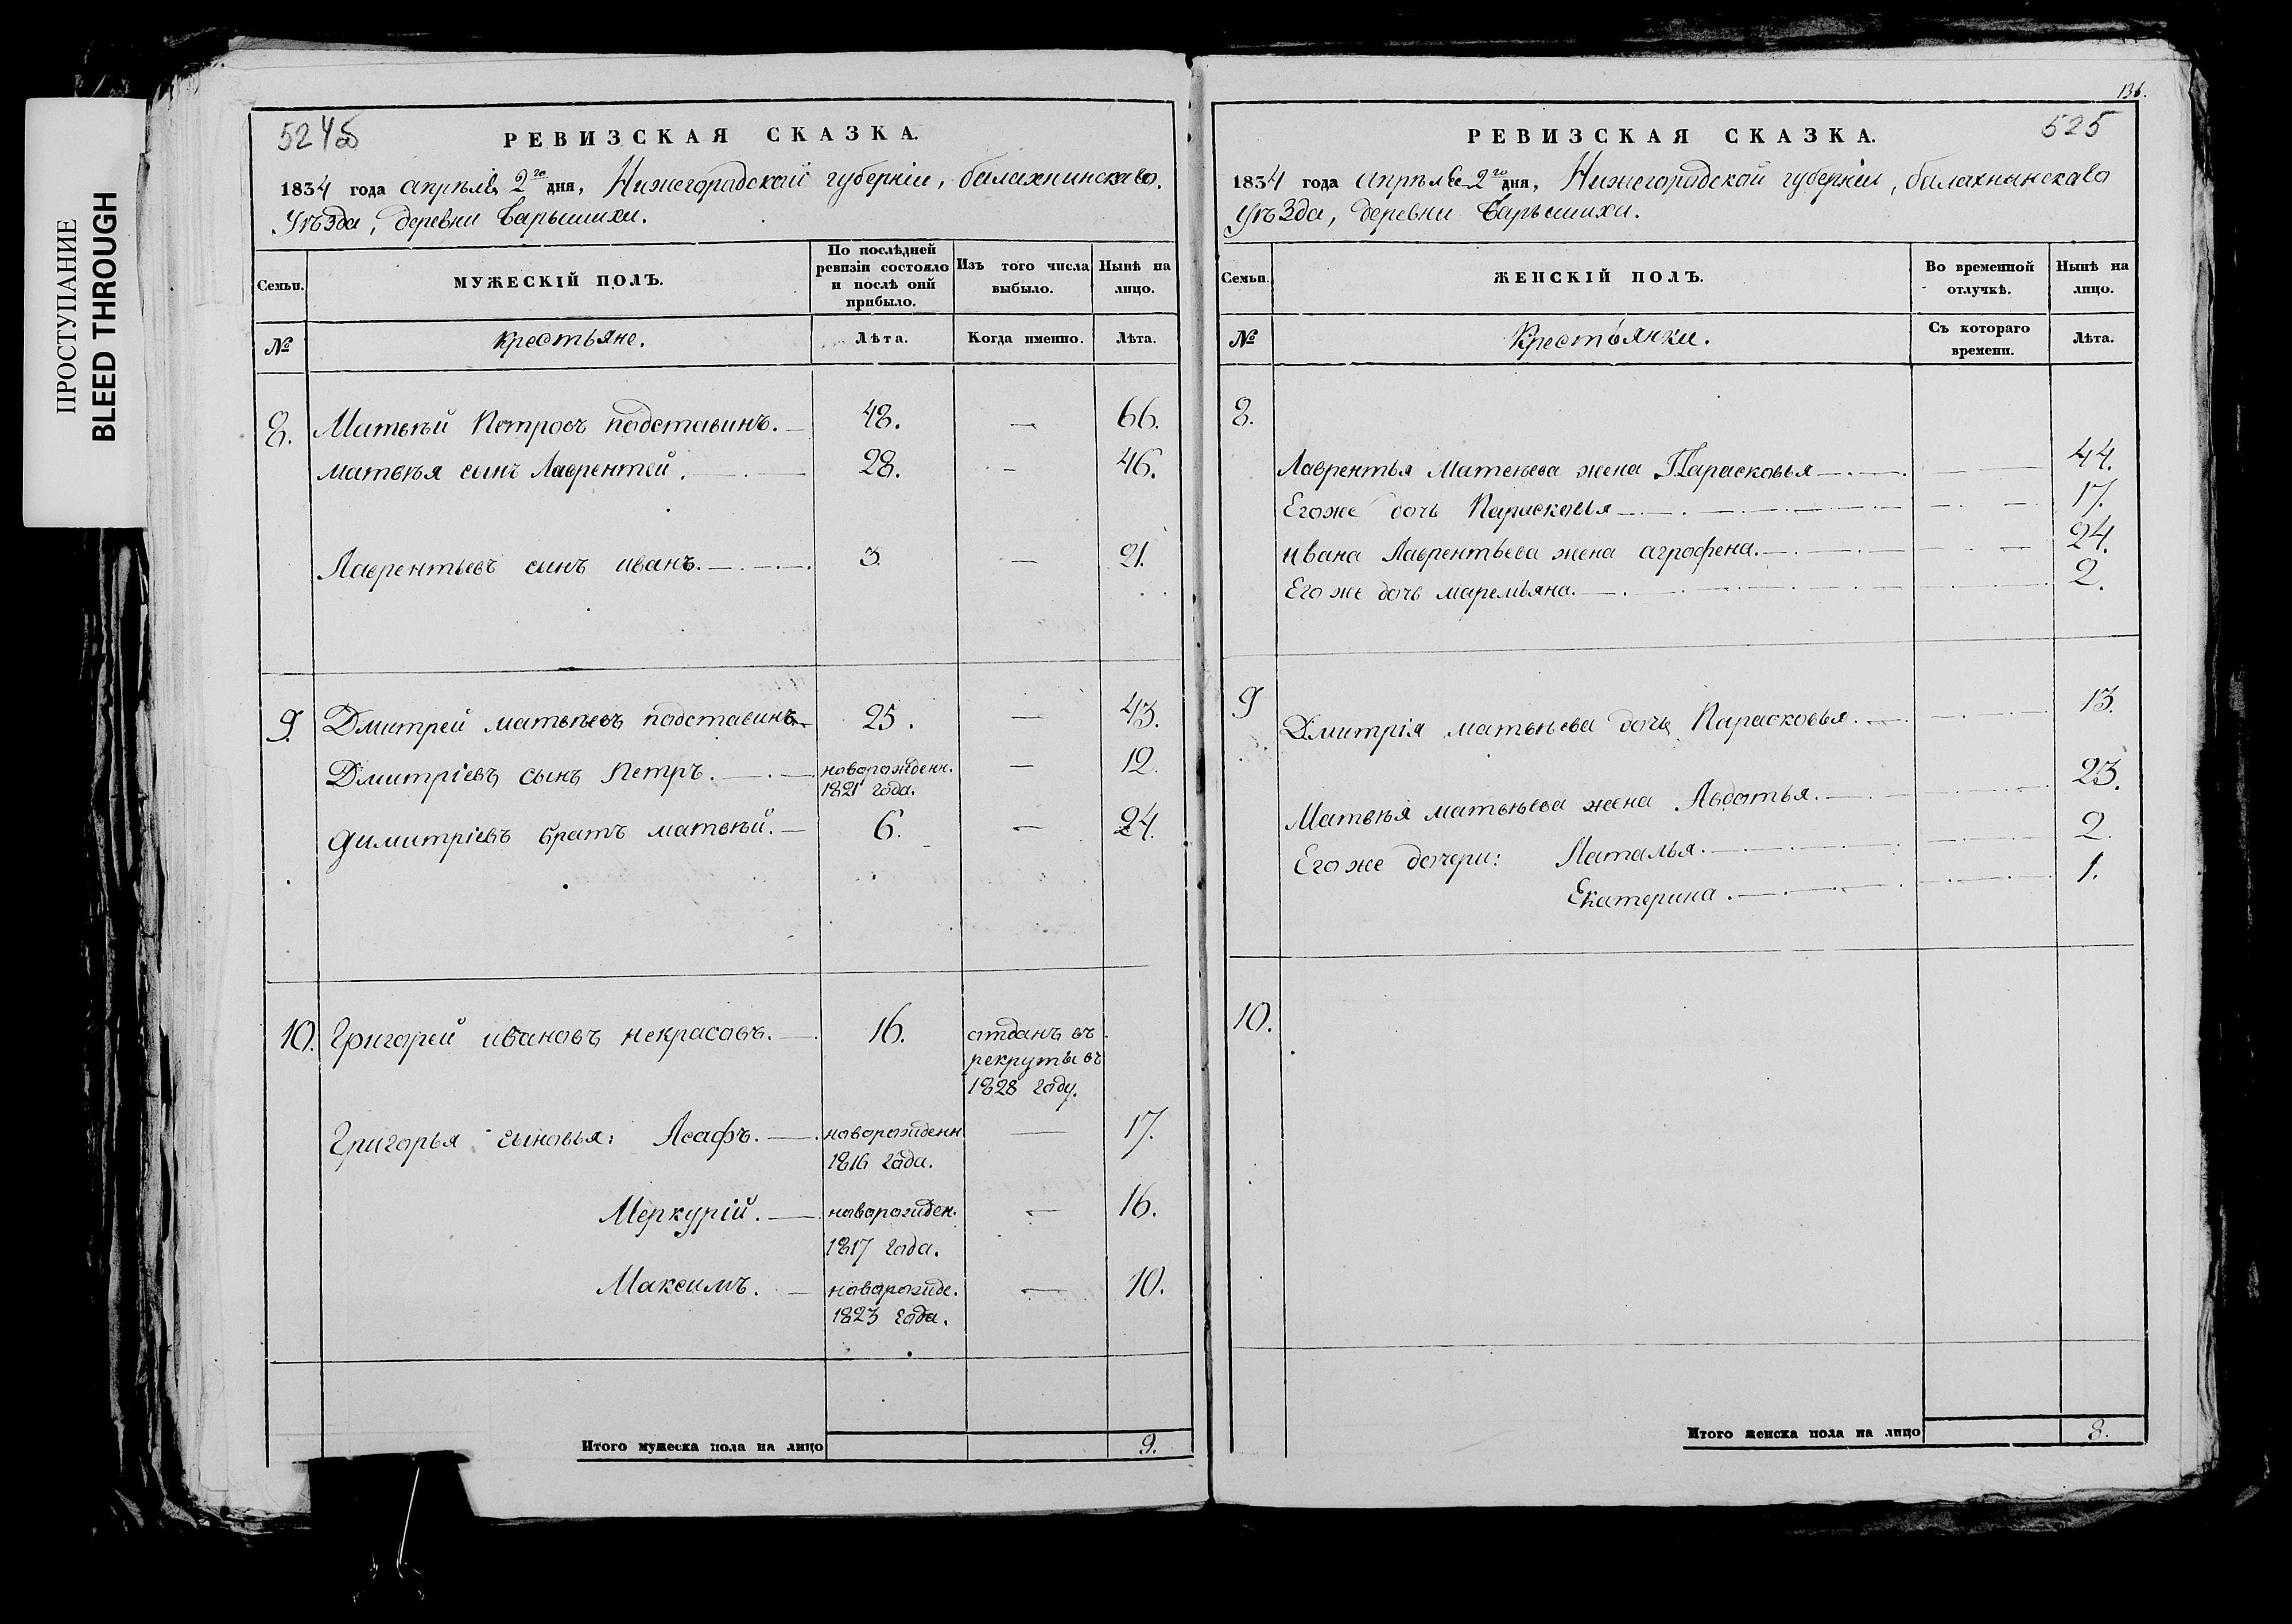 ПРОСТУПАНИЕ
BLEED THROUGH
524
РЕВИЗСКАЯ СКАЗКА.
1834 года апрѣля 2го дня, Нижегородской губерніи, балахнинскаво.
Уѣзда, деревни Барышихи.
Семьи.
МУЖЕСКІЙ ПОЛЪ.
По послѣдней ревизіи состояло и послѣ оной прибыло.
Изъ того числа выбыло.
Нынѣ на лицо.
№
Крестьяне.
Лѣта.
Когда именно.
Лѣта.
8. Матвѣй Петровъ подставинъ. — 48. — 66.
матвѣя сынъ Лаврентей. — 28. — 46.
Лаврентьевъ сынъ иванъ. — 3. — 21.
9. Дмитрей матвѣевъ подставинъ — 25. — 43.
Дмитріевъ сынъ Петръ. — новорожденн. — 12.
1821 года.
димитріевъ братъ матвѣй. — 6. — 24.
10. Григорей ивановъ некрасовъ. — 16. отданъ въ
рекруты въ
1828 году.
Григорья сыновья: Асафъ. — новорожденн — 17.
1816 года.
Меркурій. — новорожден. — 16.
1817 года.
Максимъ. — новорожде. — 10.
1823 года.
Итого мужеска пола на лицо 9.
136.
525
РЕВИЗСКАЯ СКАЗКА.
1834 года апрѣля 2го дня, Нижегородской губерніи, балахнынскаво
Уѣзда, деревни Барышихи.
Семьи.
ЖЕНСКІЙ ПОЛЪ.
Во временной отлучкѣ.
Нынѣ на лицо.
№
Крестьянки.
Съ котораго времени.
Лѣта.
8.
Лаврентья Матвѣева жена Парасковья — 44.
Егоже дочь Парасковья — 17.
ивана Лаврентьева жена агрофена. — 24.
Его же дочь маремьяна. — 2.
9
Дмитрія матвѣева дочь Парасковья. — 13.
Матвѣя матвѣева жена Авдотья. — 23.
Его же дочери: Наталья. — 2.
Екатерина. — 1.
10.
Итого женска пола на лицо 8.